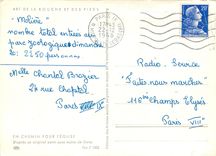 ART DE LA BOUCHE ET DES PIEDS
"Molière"
nombre total entrées au
parc zoologique dimanche
to: 2250 personnes
Melle Chantal Brazier
24 rue Chaptal
Paris IX
Radio-Source
"Faites-nous marcher"
116 bis Champs Elysées
Paris VIII
EN CHEMIN POUR L'ÉGLISE